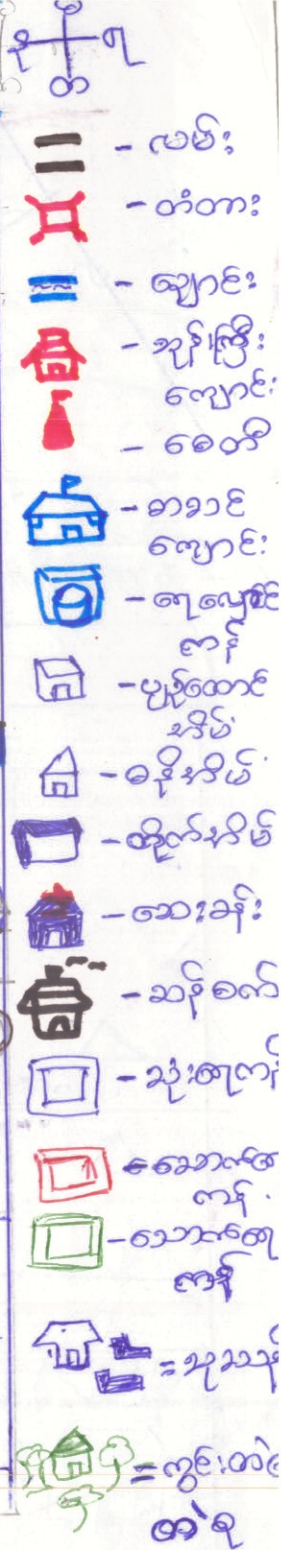 မ
န ရ
တ
- လမ်း
- တံတား
- ချောင်း
- ဘုန်းကြီး
ကျောင်း
- စေတီ
- စာသင်
ကျောင်း
- ရေလှောင်
ကန်
- ပျဉ်ထောင်
အိမ်
- ဓနိအိမ်
- တိုက်အိမ်
- ဆေးခန်း
- ဆန်စက်
- သုံးရေကန်
ကန်
- သောက်ရေ
ကန်
= သုသာန်
= ကွင်းတဲ
တဲစု